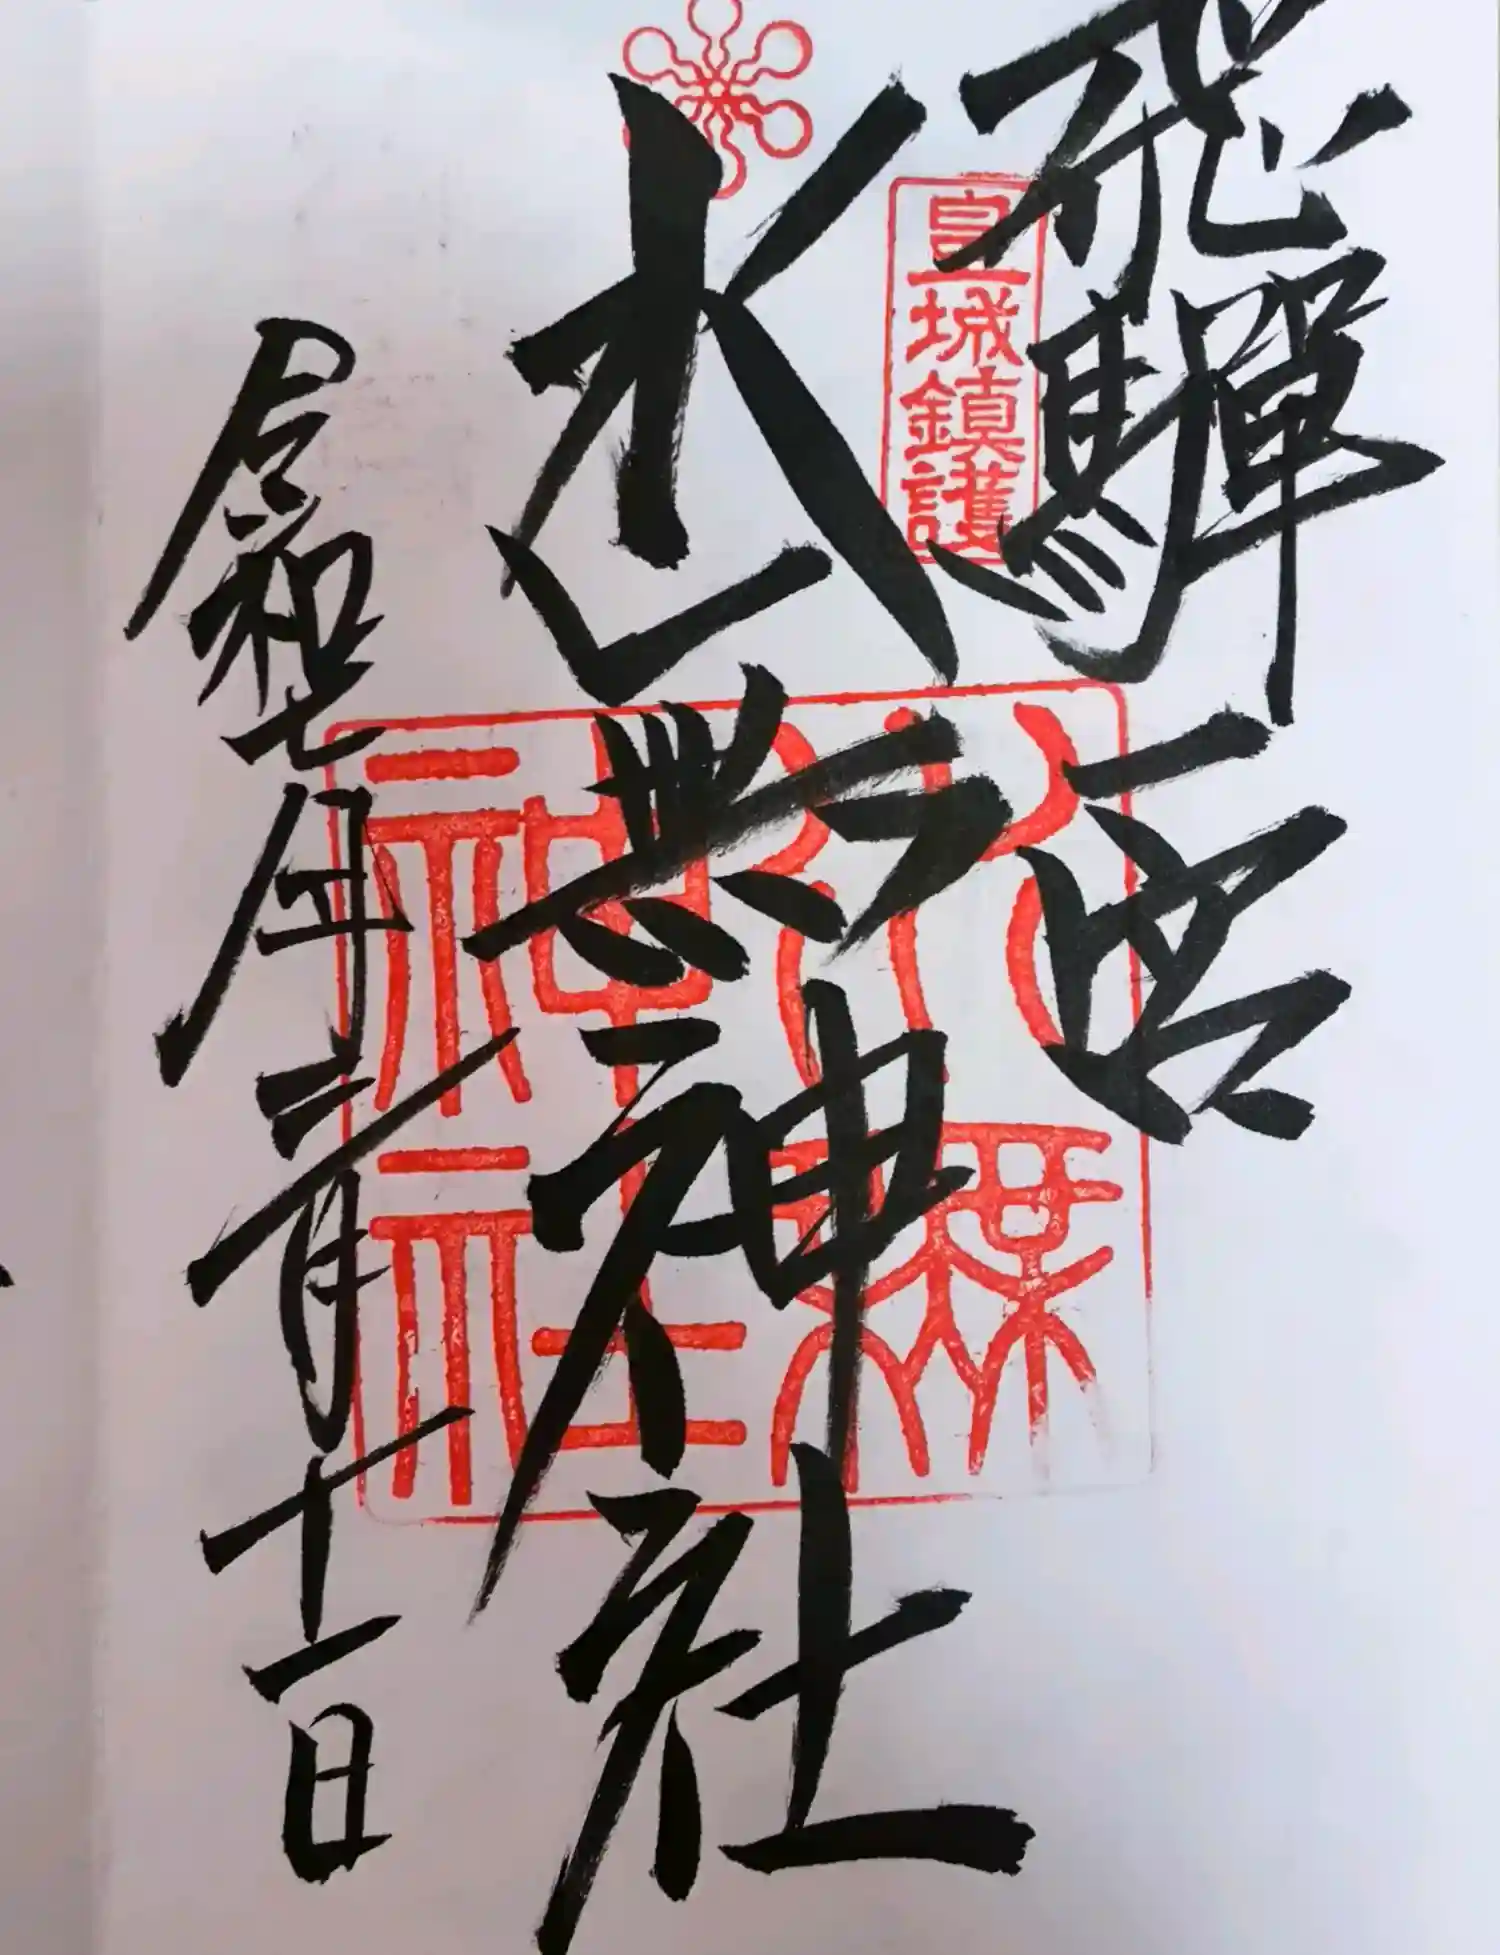 飛驒一宮
皇城鎮護
水無神社
水無神社
令和七年二月十一日